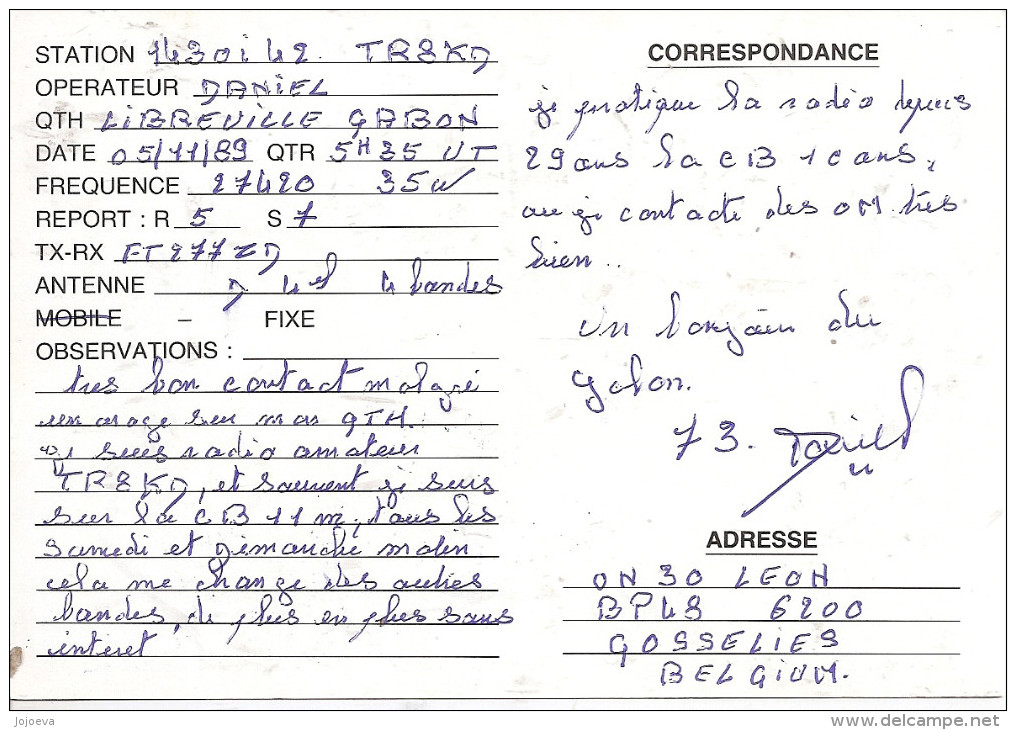 STATION 143 OI 42. TR8KD
OPERATEUR DANIEL
QTH LIBREVILLE GABON
DATE 05/11/89 QTR 5H35 UT
FREQUENCE 27420 35W
REPORT : R 5 S 7
TX-RX FT277ZD
ANTENNE 4 bandes
MOBILE – FIXE
OBSERVATIONS :
tres bon contact malgré
un orage sur mon QTH.
suis radio amateur
TR8KD, et souvent je suis
sur la CB 11 m, tous les
samedi et Dimanche matin
cela me change des autres
bandes, de plus en plus sans
interet
CORRESPONDANCE
je pratique la radio depuis
29 ans la CB 10 ans,
ou je contacte des OM tres
bien..
Un bonjour du
Gabon.
73. Daniel
ADRESSE
ON 30 LEON
BP48 6200
GOSSELIES
BELGIUM.
Jojoeva
www.delcampe.net